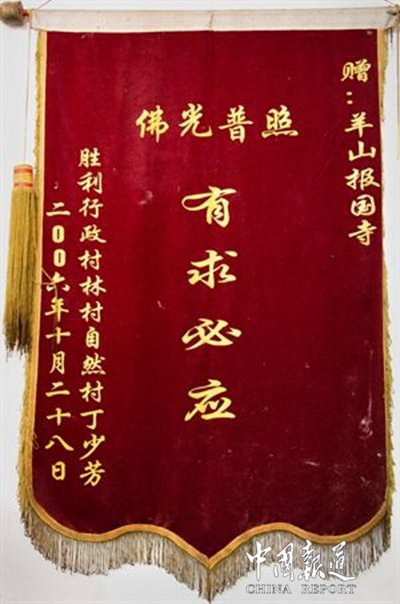 赠：羊山报国寺
佛光普照
有求必应
胜利行政村林村自然村丁少芳
二00六年十月二十八日
中国报道
CHINA REPORT